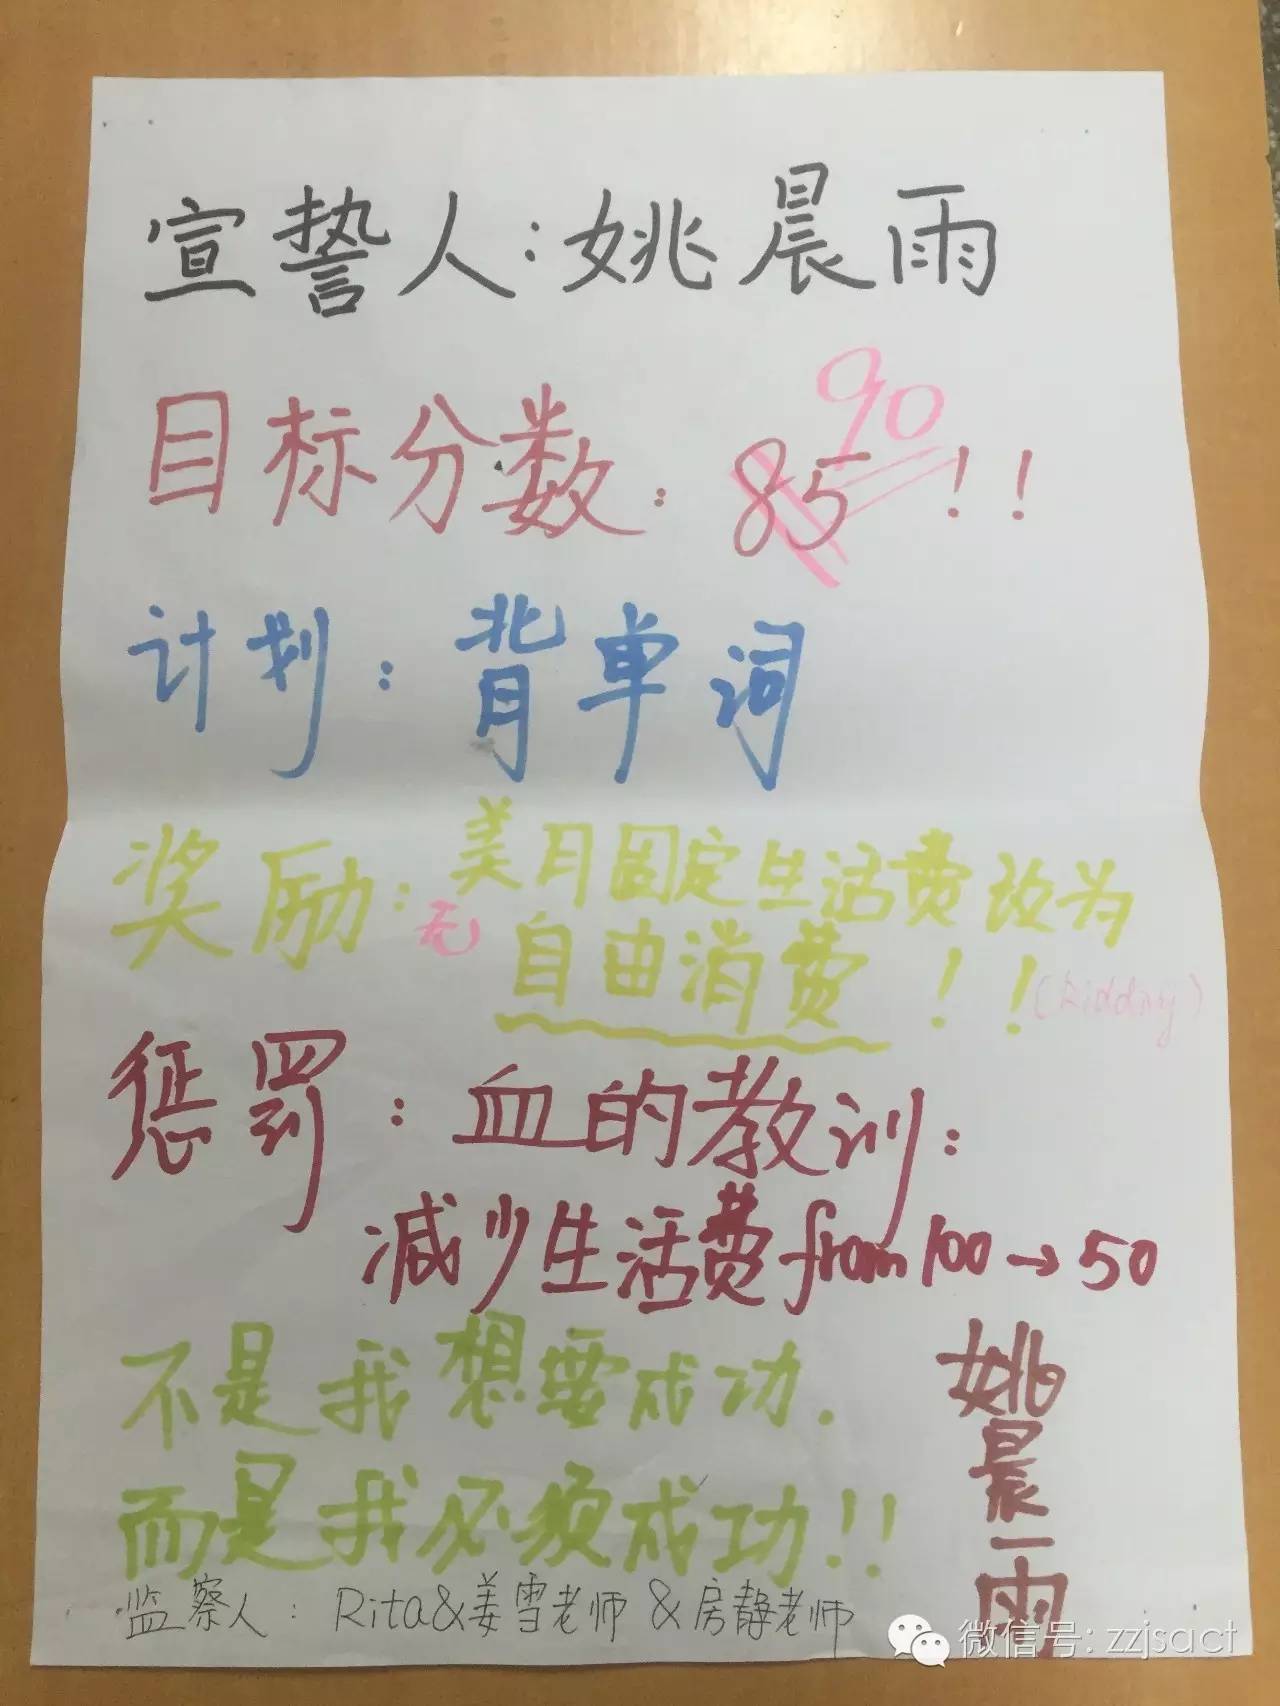 宣誓人:姚晨雨
90
目标分数:85!!
计划:背单词
奖励:美月固定生活费改为
无
自由消费!!
惩罚:血的教训:
减少生活费from100→50
不是我想要成功.
而是我必须成功!!
姚晨雨
监察人:Rita&姜雪老师&房静老师
微信号:zzjsact